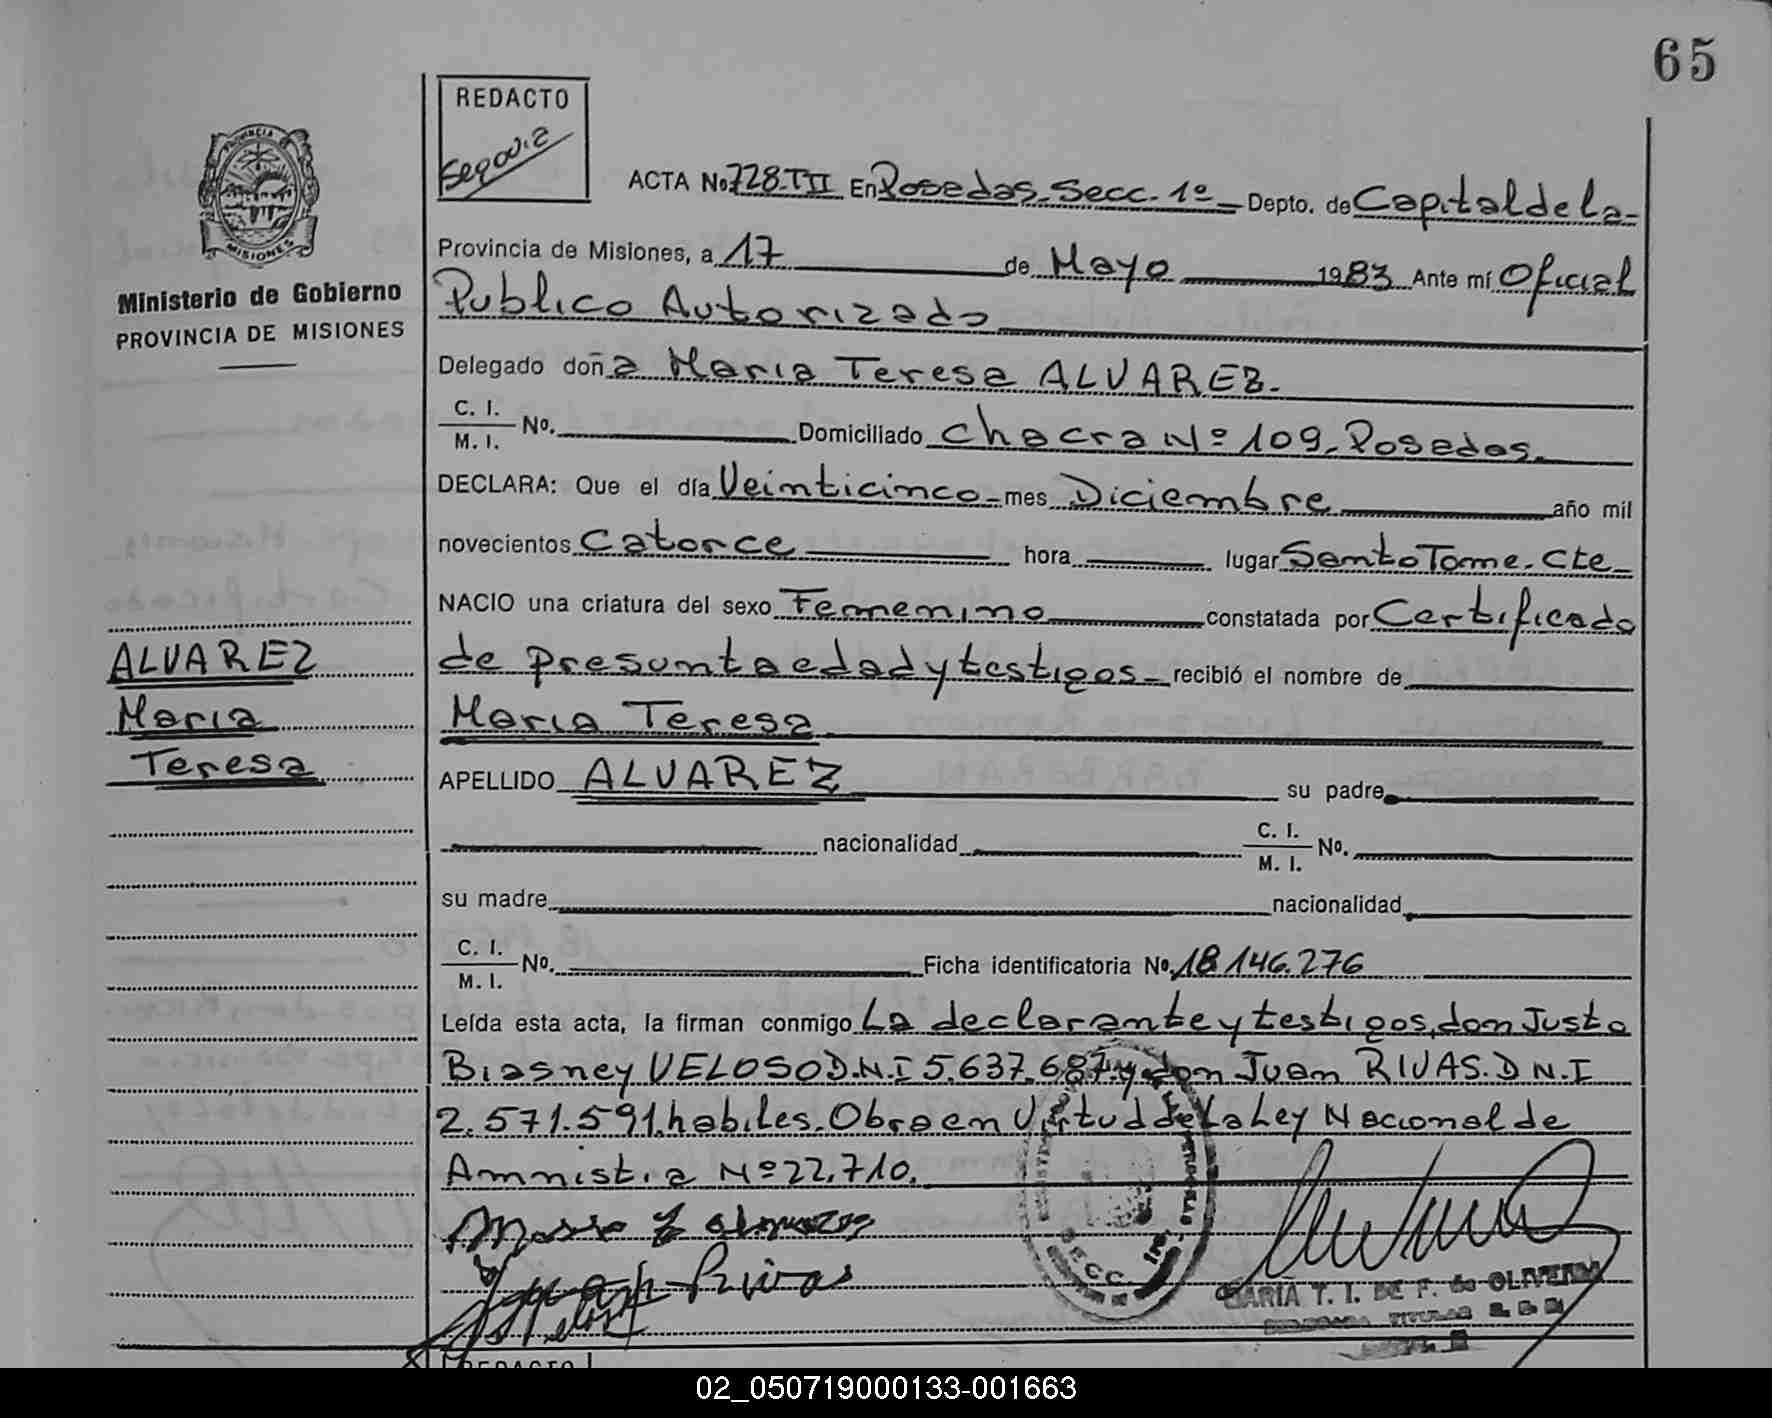 65
REDACTO
Segovia
PROVINCIA
MISIONES
Ministerio de Gobierno
PROVINCIA DE MISIONES
ACTA No. 728.TII En Posadas. Secc. 1º Depto. de Capital de la
Provincia de Misiones, a 17 de Mayo 1983 Ante mí Oficial
Publico Autorizado
Delegado doña Maria Teresa ALVAREZ.
C. I.
M. I. No. Domiciliado Chacra Nº 109. Posadas.
DECLARA: Que el día Veinticinco mes Diciembre año mil
novecientos Catorce hora lugar Santo Tome. Cte
NACIO una criatura del sexo Femenino constatada por Certificado
de Presunta edad y testigos recibió el nombre de
Maria Teresa
APELLIDO ALVAREZ su padre
nacionalidad C. I.
M. I. No.
su madre nacionalidad
C. I.
M. I. No. Ficha identificatoria No. 18.146.276
Leída esta acta, la firman conmigo La declarante y testigos, don Justo
Biasney VELOSO D.N.I 5.637.687. y don Juan RIVAS. D N.I
2.571.591. habiles. Obra en Virtud de la Ley Nacional de
Amnistia Nº 22.710.
ALVAREZ
Maria
Teresa
Rivas
SECC.
MARIA T. I. DE F. de OLIVEIRA
TITULAR
REDACTO
02_050719000133-001663